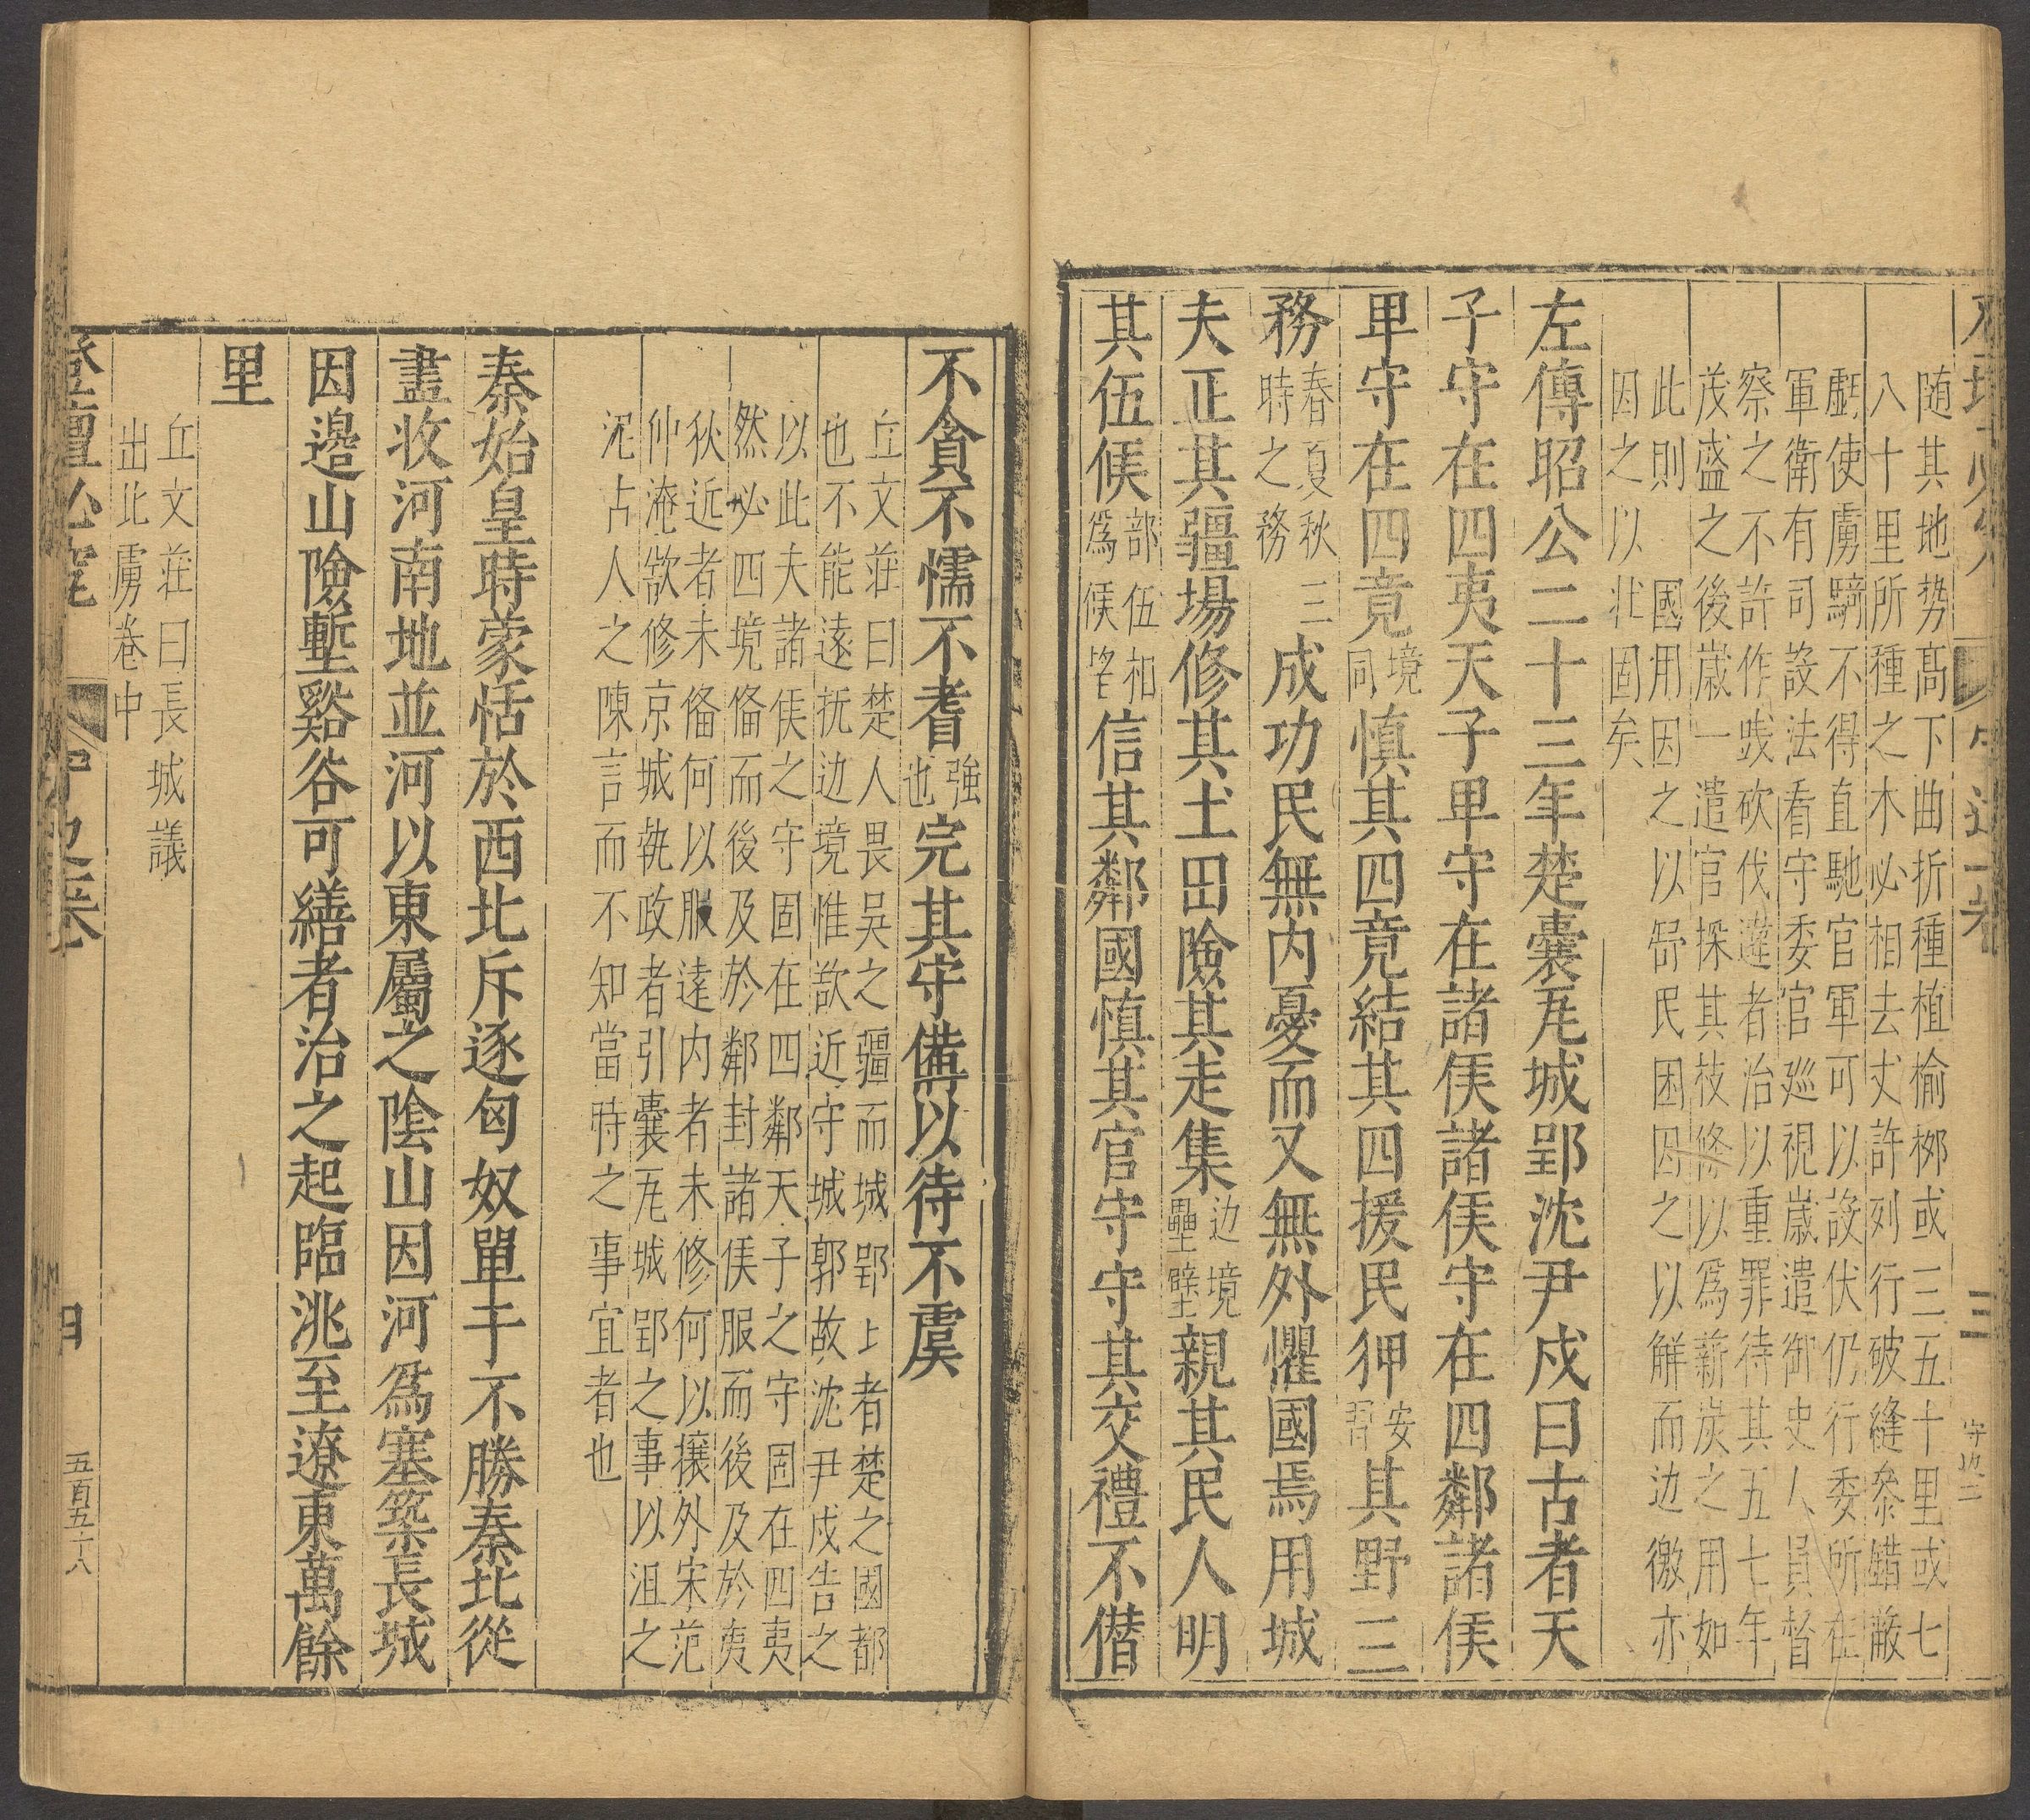 随其地势髙下曲折種植榆桞或三五十里或七
八十里所種之木必相去丈許列行破縫叅錯蔽
虧使虜騎不得直馳官軍可以設伏仍行委所在
軍衛有司設法看守委官廵視歲遣御史人員督
察之不許作踐砍伐違者治以重罪待其五七年
茂盛之後歲一遣官採其枝條以爲薪炭之用如
此則國用因之以舒民困因之以觧而边徼亦
因之以壮固矣
左傳昭公二十三年楚囊瓦城郢沈尹戍曰古者天
子守在四夷天子卑守在諸侯諸侯守在四鄰諸侯
卑守在四竟境同慎其四竟結其四援民狎安習其野三
務春夏秋三時之務成功民無内憂而又無外懼國焉用城
夫正其疆場修其土田險其走集边境壘壁親其民人明
其伍候部伍相爲候望信其鄰國慎其官守守其交禮不僣
不貪不懦不耆強也完其守備以待不虞
丘文莊曰楚人畏吳之疆而城郢郢者楚之國都
也不能遠抚边境惟欲近守城郭故沈尹戍告之
以此夫諸侯之守固在四鄰天子之守固在四夷
然必四境偹而後及於鄰封諸侯服而後及於夷
狄近者未偹何以服遠内者未修何以攘外宋范
仲淹欲修京城執政者引囊瓦城郢之事以沮之
泥古人之陳言而不知當時之事宜者也
秦始皇時蒙恬於西北斥逐匈奴單于不勝秦北從
盡收河南地並河以東屬之陰山因河爲塞築長城
因邊山險塹谿谷可繕者治之起臨洮至遼東萬餘
里
丘文莊曰長城議
出北虜卷中
登壇必究
四
五百五十八